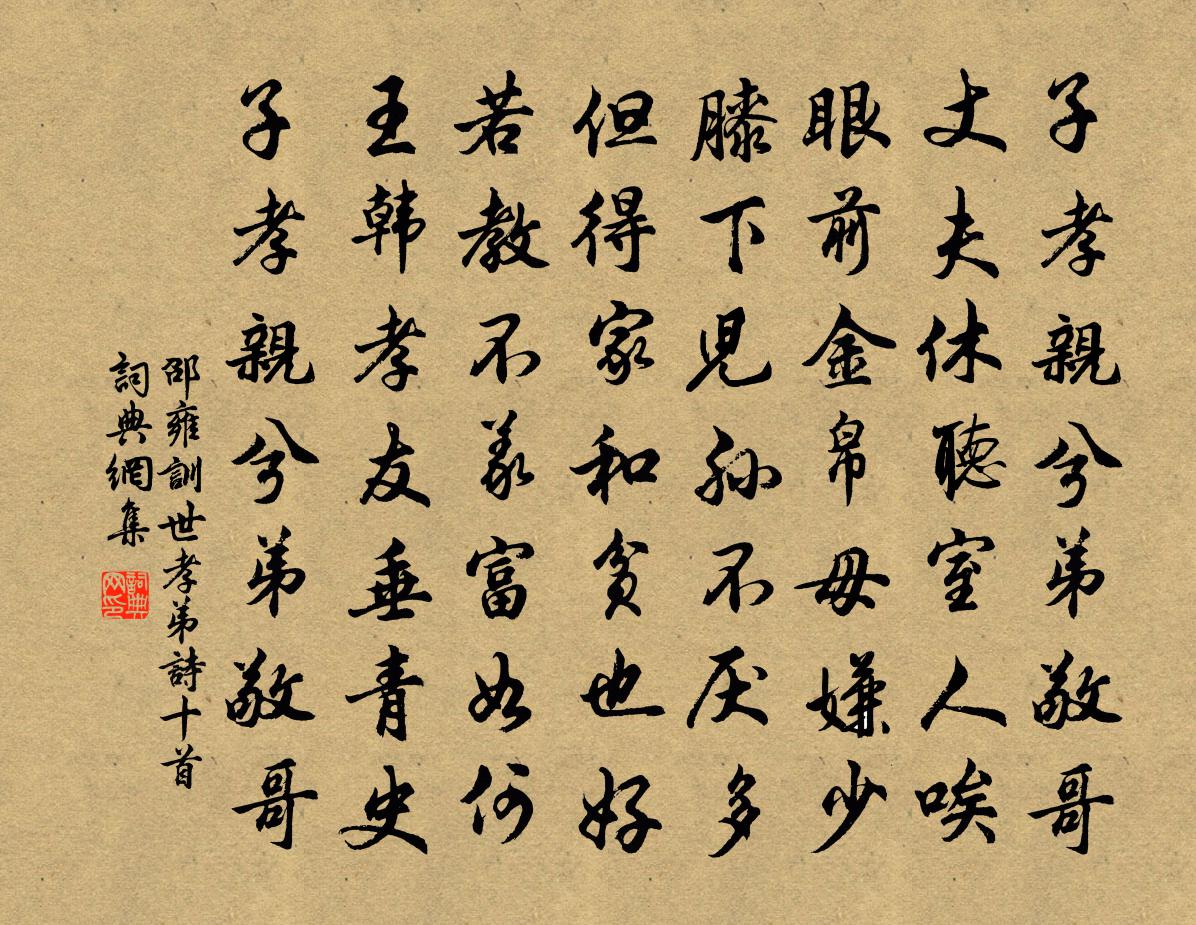 子孝親兮弟敬哥
丈夫休聽室人唆
眼前金帛毋嫌少
膝下児孙不厌多
但得家和贫也好
若教不義富如何
王韩孝友垂青史
子孝親兮弟敬哥
邵雍訓世孝弟詩十首
詞典網集
詞典网印